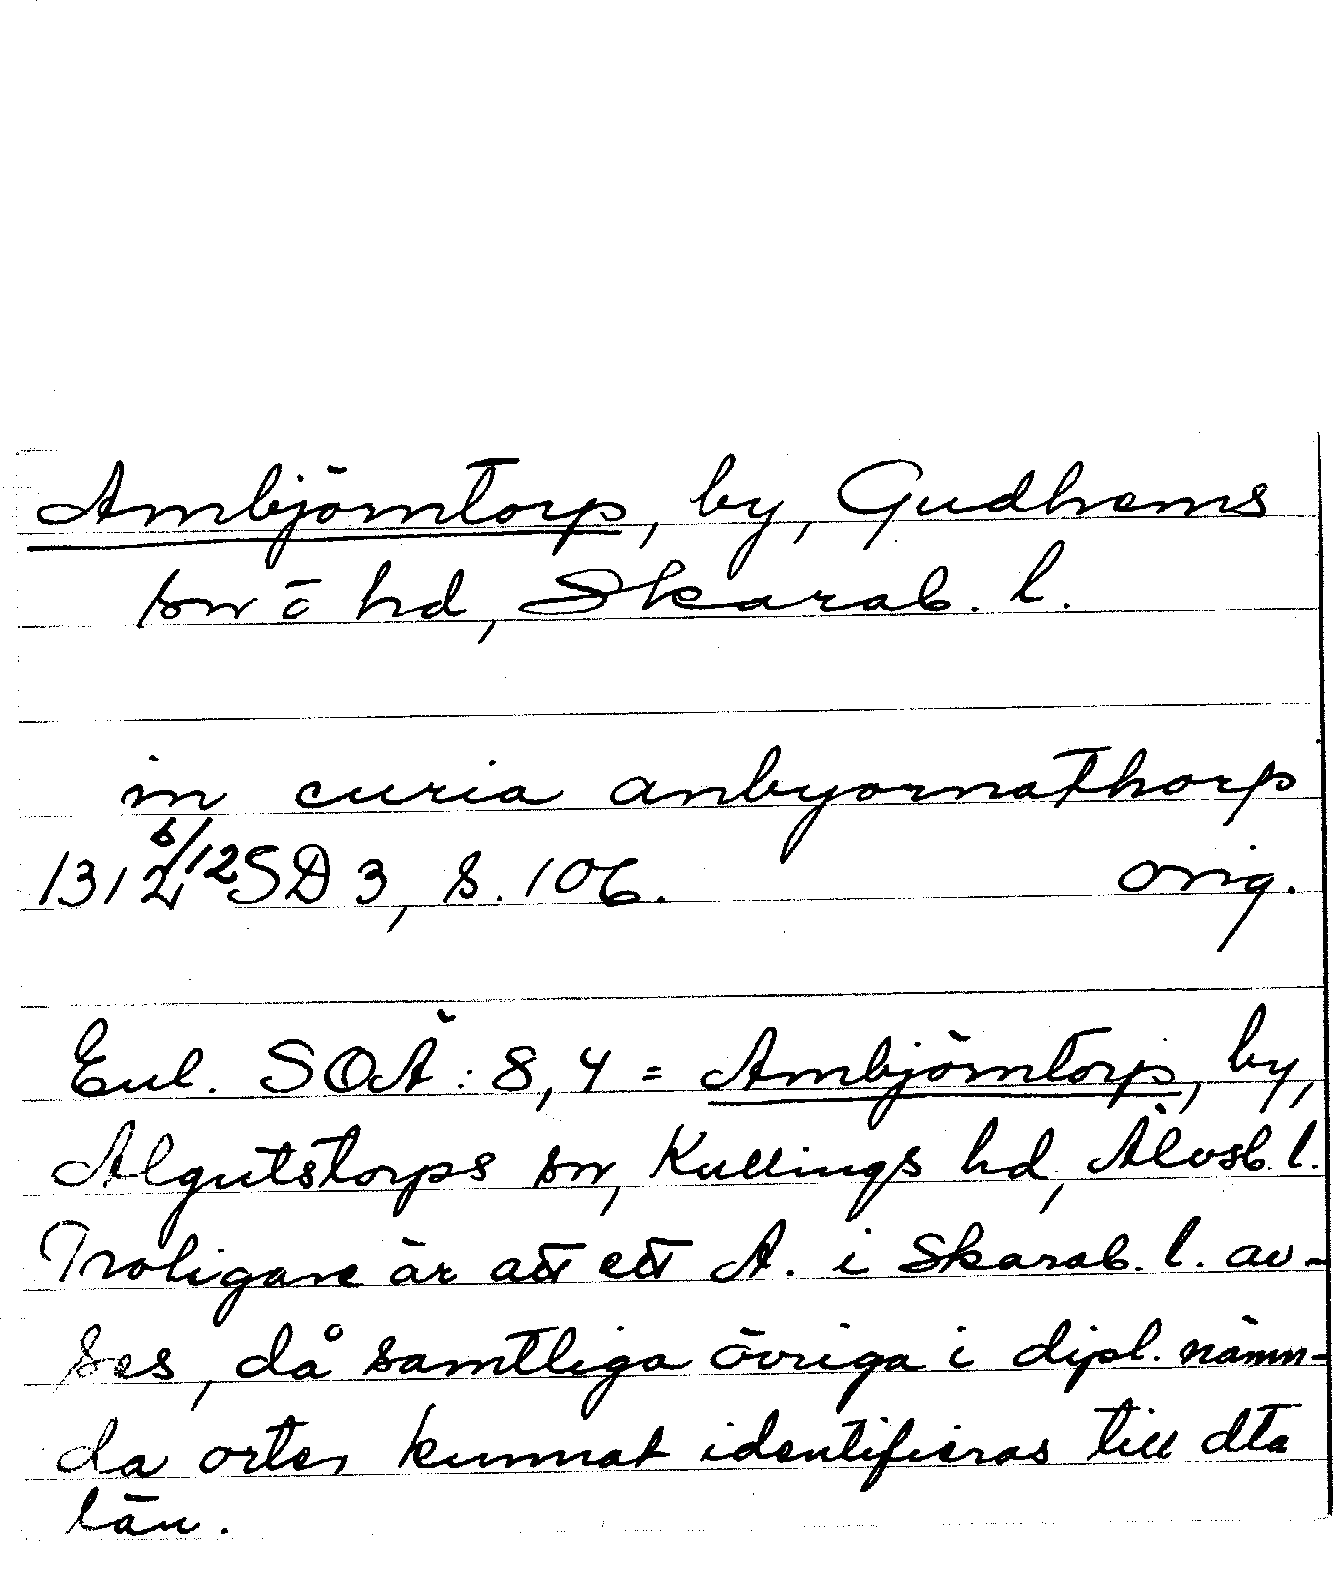 Ambjörntorp, by, Gudhems
sn o hd, Skarab. l.
in curia anbyornathorp
1312 6/12 SD 3, s. 106. orig.
Enl. SOÄ: 8, 4 = Ambjörntorp, by,
Algutstorps sn, Kullings hd, Älvsb. l.
Troligare är att ett A. i Skarab. l. av-
ses, då samtliga övriga i dipl. nämn-
da orter kunnat identifieras till dta
län.